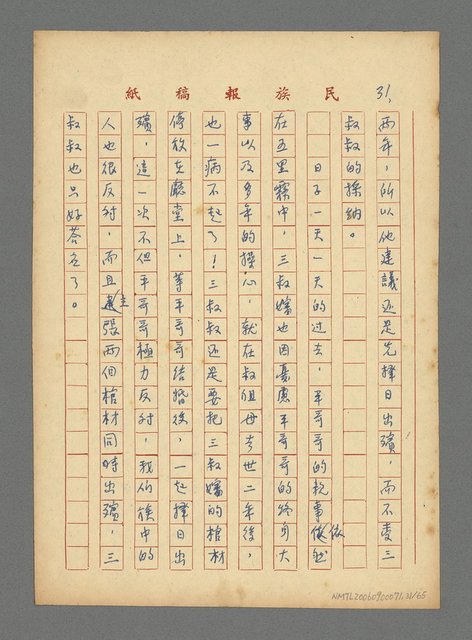 民族報稿紙
31,
兩年，所以他建議还是先擇日出殯，而不麦三
叔叔的採納。
日子一天一天的过去，平哥哥的親事依然
在五里霧中，三叔嬸也因憂慮平哥哥的終身大
事以及多年的操心，就在叔祖母去世二年後，
也一病不起了！三叔叔还是要把三叔嬸的棺材
停放在廳堂上，等平哥哥結婚後，一起擇日出
殯，這一次不但平哥哥極力反对，我们族中的
人也很反对，而且主張兩個棺材同時出殯，三
叔叔也只好答应了。
NMTL20060900071,31/65